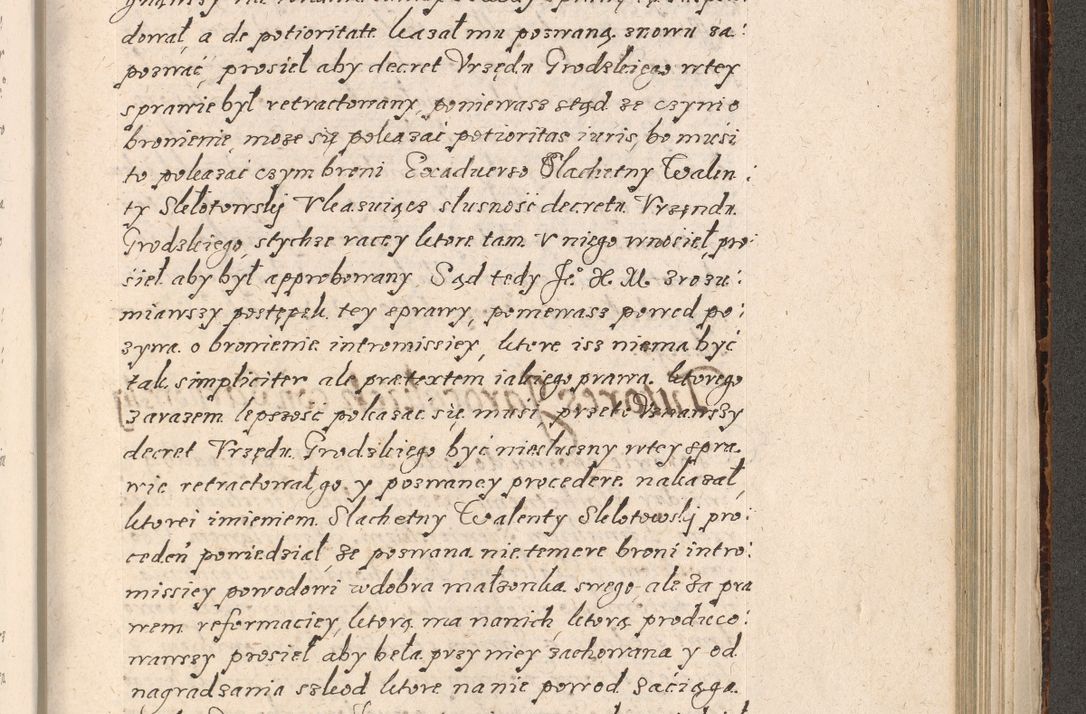 dował, a de potioritate kazał mu pozwaną znowu za:
pozwać, prosieł aby decret Vrzędu Grodzkiego wtey
sprawie był retractowany, poniewasz stąd że czynio
bronienie, może się pokazać potioritas iuris, bo muśi
to pokazać czym broni Exaduerso Slachetny Walen:
ty Sklotowskij Vkazuiącz slusność decretu Vrzendu
Grodzkiego, stychże racey ktore tam V niego wnosieł, pro:
śieł aby był approbowany Sąd tedy Je° X. M. zrozu:
miawszy postępek tey sprawy, poniewasz powod po:
zywa o bronienie intromissiey, ktore isz niema być
tak simpliciter ale prætextem iakiego prawa ktorego
zarazem lepszość pokazać się musi przeto Vznawszy
decret Vrzędu Grodzkiego być niesłuszny wtey spra
wie retractował go y pozwaney procedere nakazał,
ktorei imieniem Slachetny Walenty Sklotowskj pro:
ceden powiedział, że pozwana nie temere broni intro:
missiey powodowi wdobra małżonka swego ale za pra
wem reformaciey, ktorą ma nanich, ktorą produco:
wawszy prosieł aby beła przy niey zachowana y od
nagradzania szkod ktore nanie powod zaciąga.